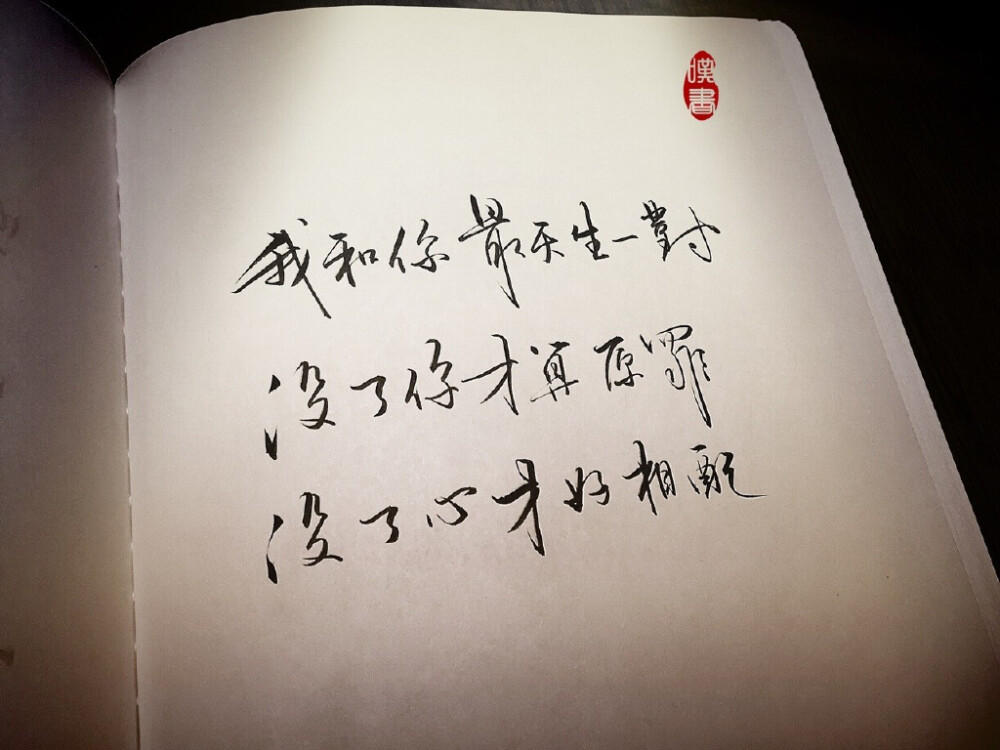 嘆書
我和你最天生一對
沒了你才算原罪
沒了心才好相配